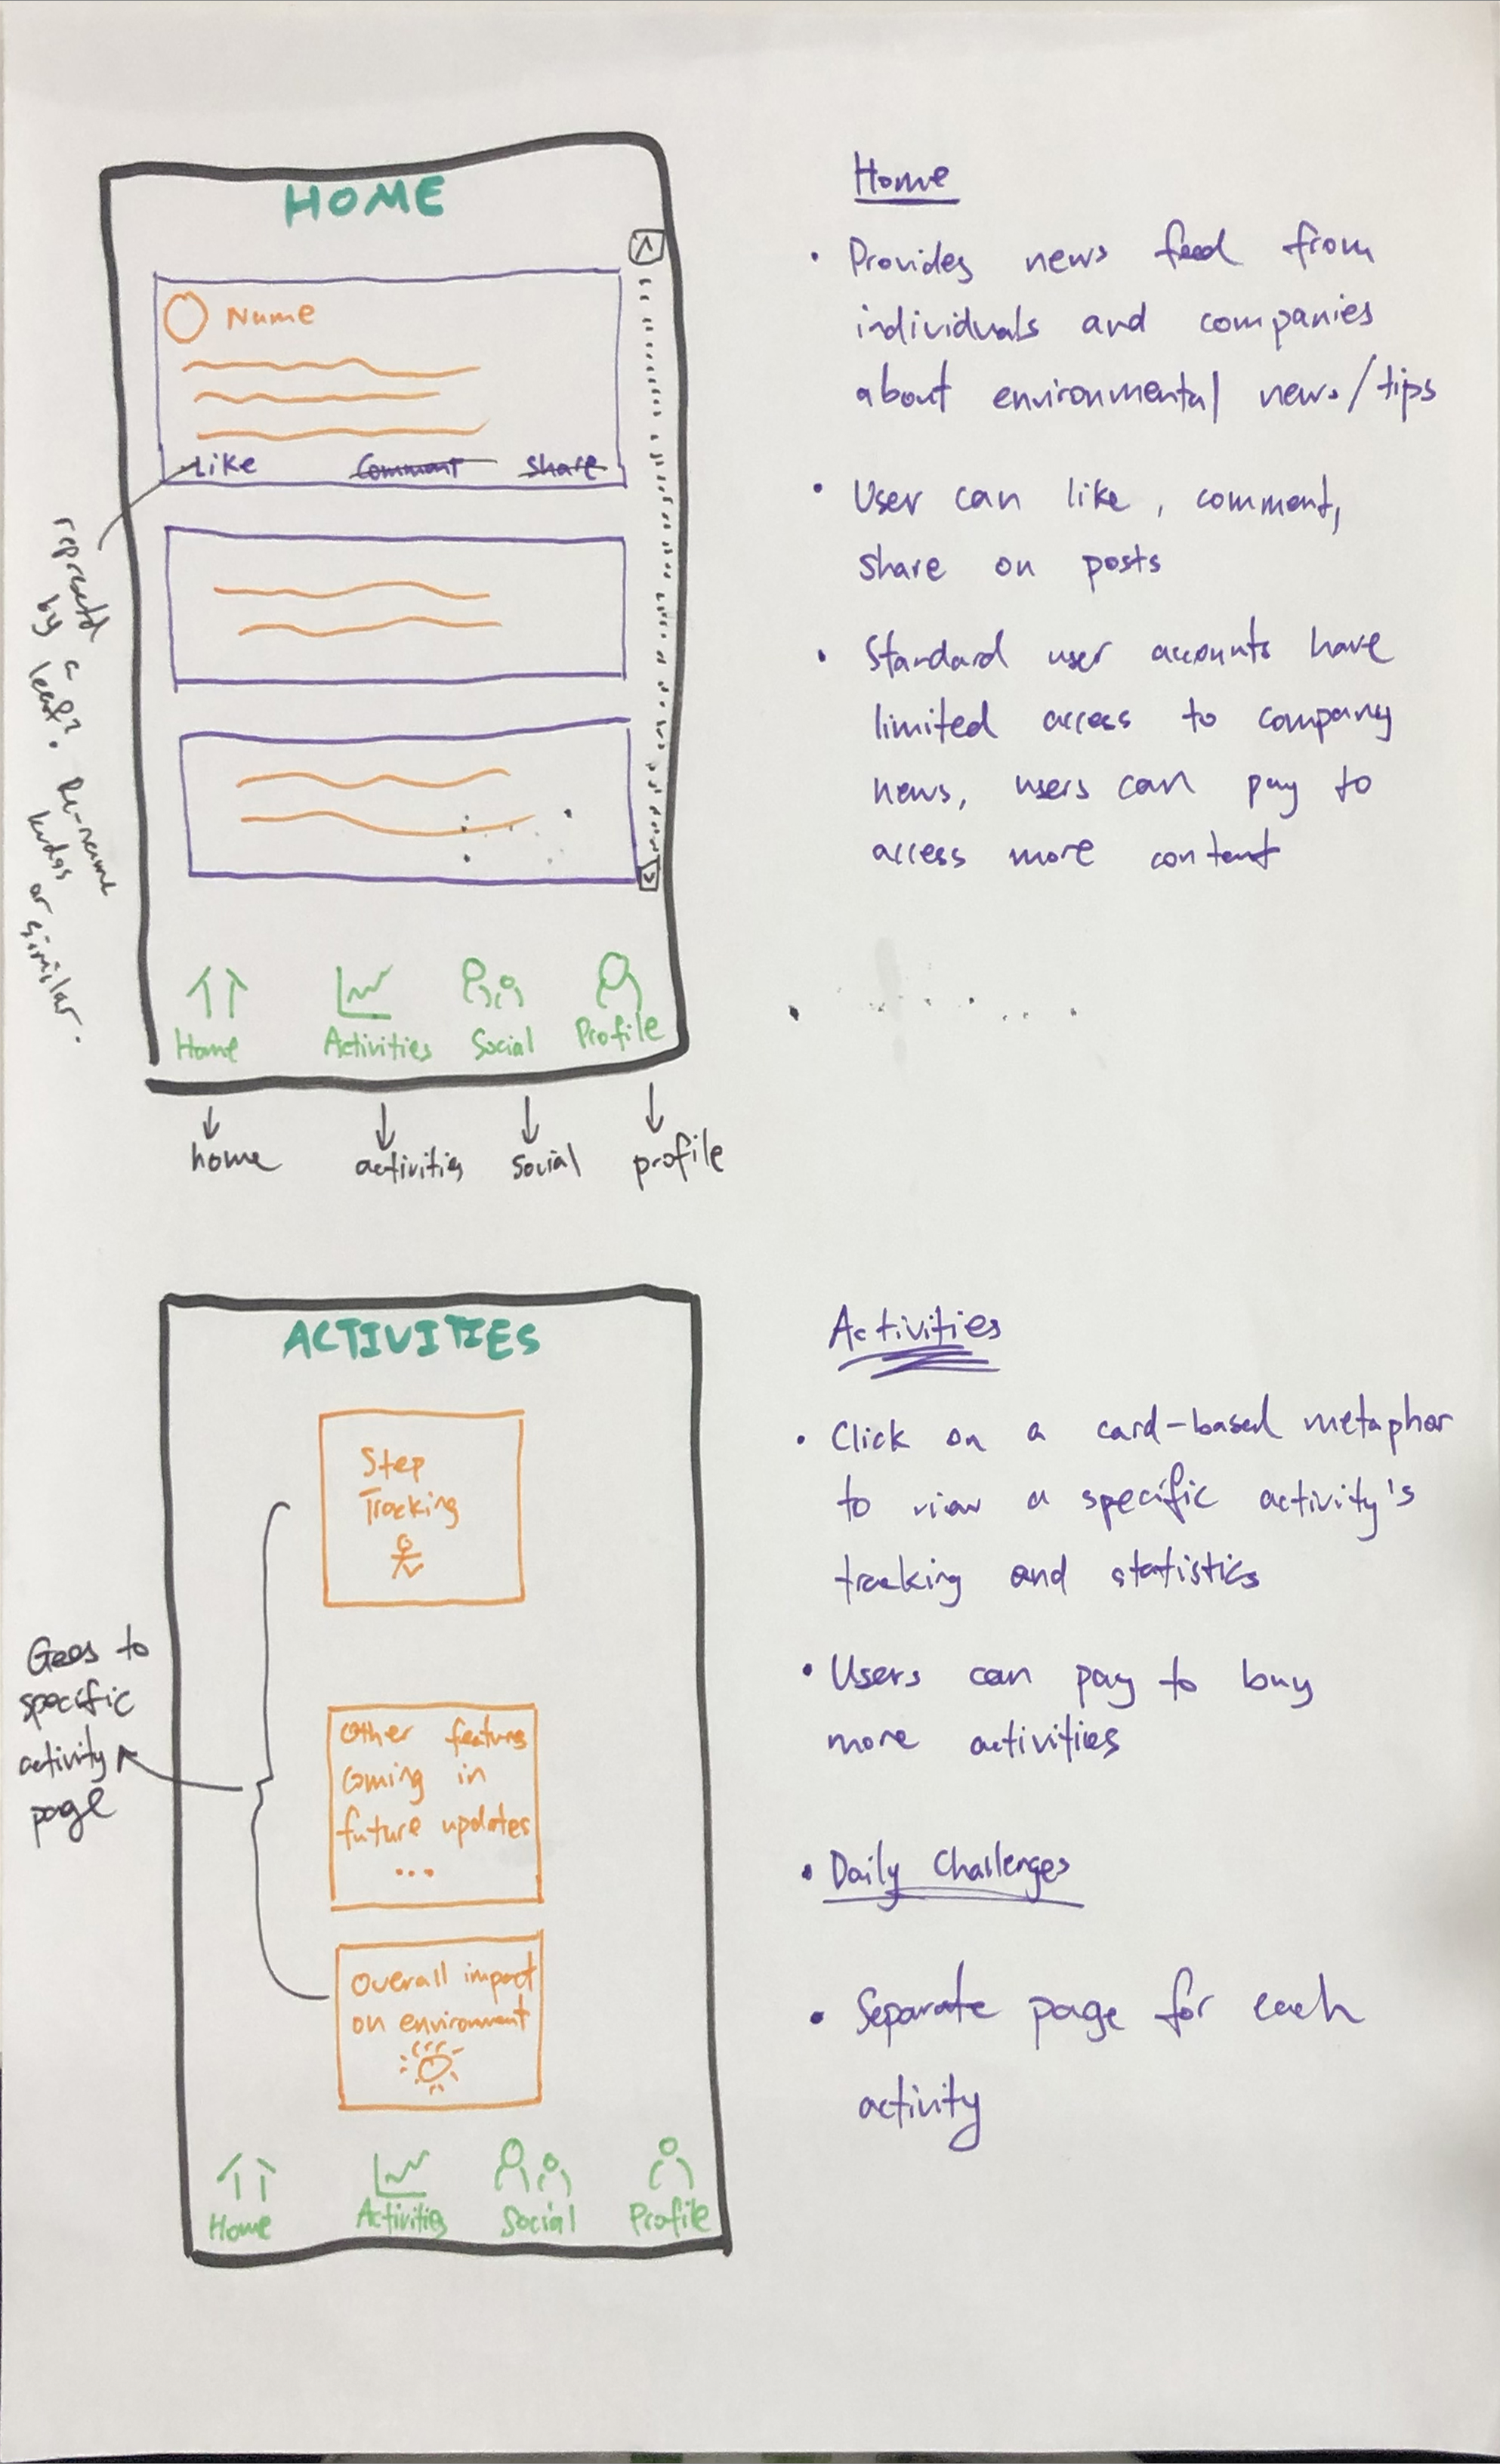 HOME
Name
Like Comment Share
represetd
by a
leaf?.
Re-name
kudos
or
similar.
Home Activities Social Profile
home activities social profile
Home
• Provides news feed from
individuals and companies
about environmental news/tips
• User can like, comment,
share on posts
• Standard user accounts have
limited access to company
news, users can pay to
access more content
ACTIVITIES
Step
Tracking
Other features
coming in
future updates
...
Overall impact
on environment
Goes to
specific
activity
page
Home Activities Social Profile
Activities
• Click on a card-based metaphor
to view a specific activity's
tracking and statistics
• Users can pay to buy
more activities
• Daily Challenges
• Separate page for each
activity